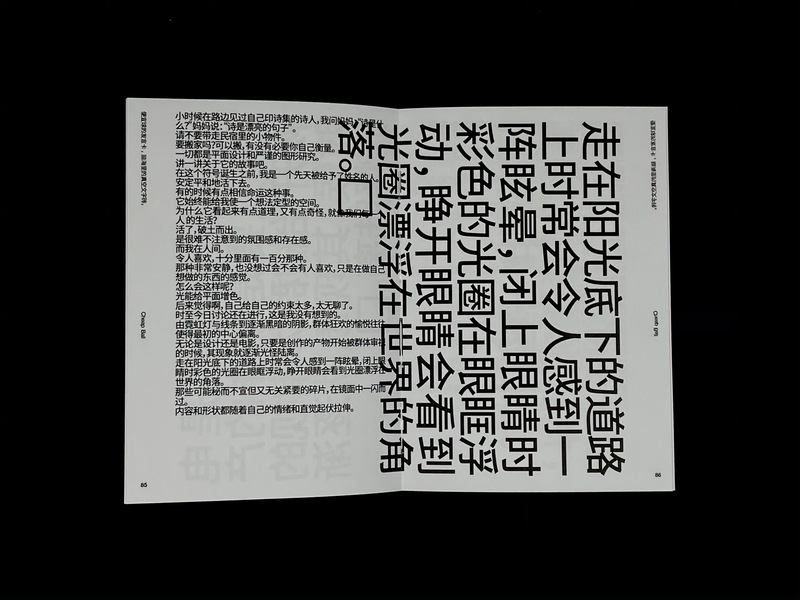 小时候在路边见过自己印诗集的诗人，我问妈妈：“诗是什
么？”妈妈说：“诗是漂亮的句子”。
请不要带走民宿里的小物件。
要搬家吗？可以搬，有没有必要你自己衡量。
一切都是平面设计和严谨的图形研究。
讲一讲关于它的故事吧。
在这个符号诞生之前，我是一个先天被给予了姓名的人。
安定平和地活下去。
有的时候有点相信命运这种事。
它始终能给我使一个想法定型的空间。
为什么它看起来有点道理，又有点奇怪，就像我们每一个
人的生活？
活了，破土而出。
是很难不注意到的氛围感和存在感。
而我在人间。
令人喜欢，十分里面有一百分那种。
那种非常安静，也没想过会不会有人喜欢，只是在做自己
想做的东西的感觉。
怎么会这样呢？
光能给平面增色。
后来觉得啊，自己给自己的约束太多，太无聊了。
时至今日讨论还在进行，这是我没有想到的。
由霓虹灯与线条到逐渐黑暗的阴影，群体狂欢的愉悦往往
使得最初的中心偏离。
无论是设计还是电影，只要是创作的产物开始被群体审视
的时候，其现象就逐渐光怪陆离。
走在阳光底下的道路上时常会令人感到一阵眩晕，闭上眼
睛时彩色的光圈在眼眶浮动，睁开眼睛会看到光圈漂浮在
世界的角落。
那些可能秘而不宣但又无关紧要的碎片，在镜面中一闪而
过。
内容和形状都随着自己的情绪和直觉起伏拉伸。
Cheap Ball
85
走在阳光底下的道路
上时常会令人感到一
阵眩晕，闭上眼睛时
彩色的光圈在眼眶浮
动，睁开眼睛会看到
光圈漂浮在世界的角
落。
Cheap Ball
86